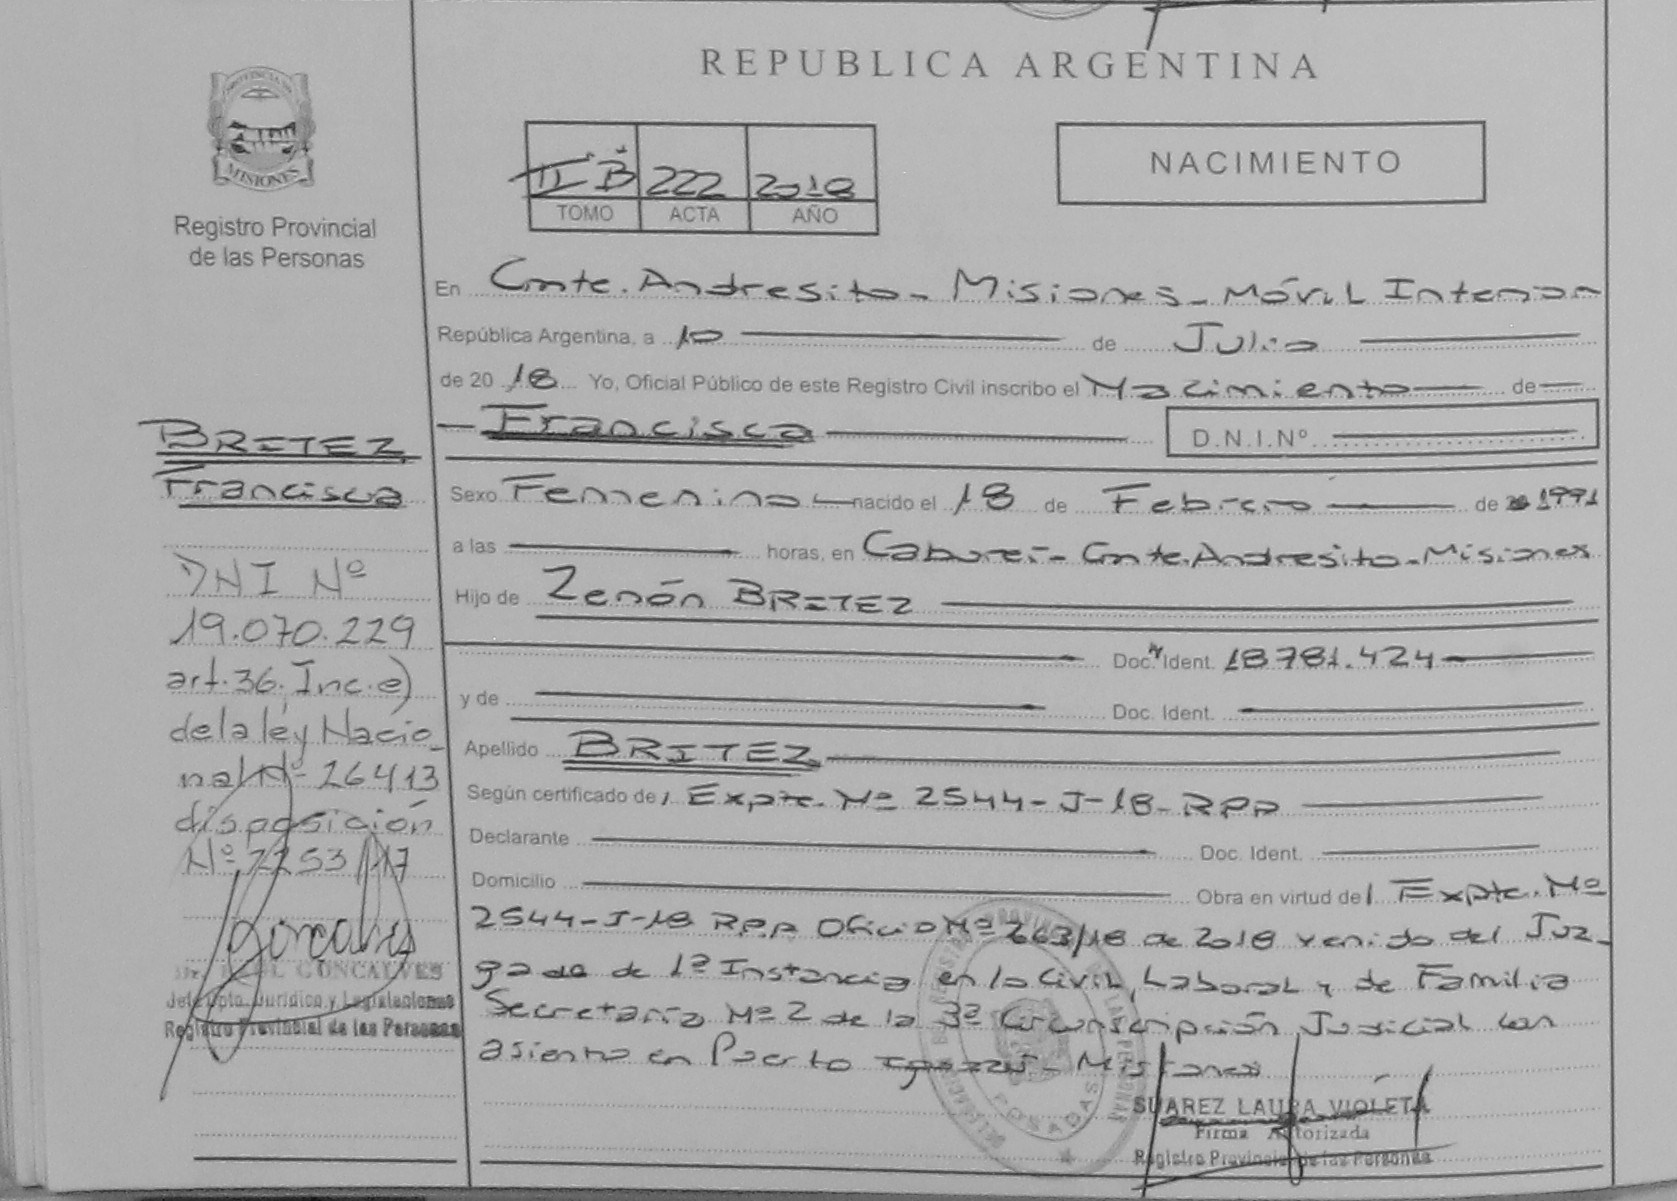 PROVINCIA DE
MISIONES
Registro Provincial
de las Personas
BRITEZ
Francisca
DNI Nº
19.070.229
art.36.Inc.e)
de la ley Nacio_
nal Nº 26413
disposición
Nº 2253/17
Goncalves
GONCALVES
Jefe Dpto. Jurídico y Legislaciones
Registro Provincial de las Personas
REPUBLICA ARGENTINA
II"B" 222 2018
TOMO ACTA AÑO
NACIMIENTO
En Cmte. Andresito - Misiones - Móvil Interior
República Argentina, a 10 de Julio
de 2018 Yo, Oficial Público de este Registro Civil inscribo el Nacimiento de
Francisca D.N.I.Nº
Sexo Femenino nacido el 18 de Febrero de 1991
a las horas, en Cabureí - Cmte. Andresito - Misiones
Hijo de Zenón BRITEZ
Doc. Ident. 18781.424
y de Doc. Ident.
Apellido BRITEZ
Según certificado de Expte. Nº 2544-J-18-RPP
Declarante Doc. Ident.
Domicilio Obra en virtud de Expte. Nº
2544-J-18 RPP Oficio Nº 663/18 de 2018 venido del Juz_
gado de 1ª Instancia en lo Civil, Laboral y de Familia
Secretaría Nº 2 de la 3ª Circunscripción Judicial con
asiento en Puerto Iguazú - Misiones
POSADAS
SUAREZ LAURA VIOLETA
Firma Autorizada
Registro Provincial de las Personas